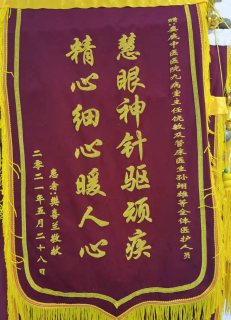 赠:娄底中医医院九病室主任饶敏及管床医生孙翊雄等全体医护人员
慧眼神针驱顽疾
精心细心暖人心
患者:樊喜兰敬献
二零二一年五月二十八日